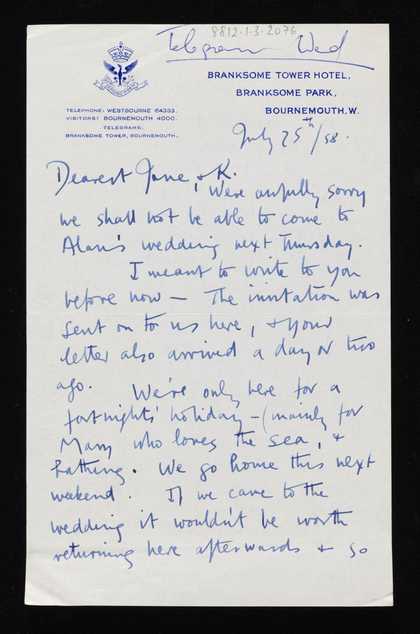 8812.1.3.2076
Telegram Wed
BRANKSOME TOWER HOTEL,
BRANKSOME PARK,
BOURNEMOUTH. W.
TELEPHONE: WESTBOURNE 64333.
VISITORS: BOURNEMOUTH 4000.
TELEGRAMS:
BRANKSOME TOWER, BOURNEMOUTH.
July 25th/58.
Dearest Jane, & K.
We're awfully sorry
we shall not be able to come to
Alan's wedding next Thursday.
I meant to write to you
before now — The invitation was
sent on to us here, & your
letter also arrived a day or two
ago. We're only here for a
fortnights' holiday — (mainly for
Mary who loves the sea, &
bathing. We go home this next
weekend. If we came to the
wedding it wouldn't be worth
returning here afterwards & so